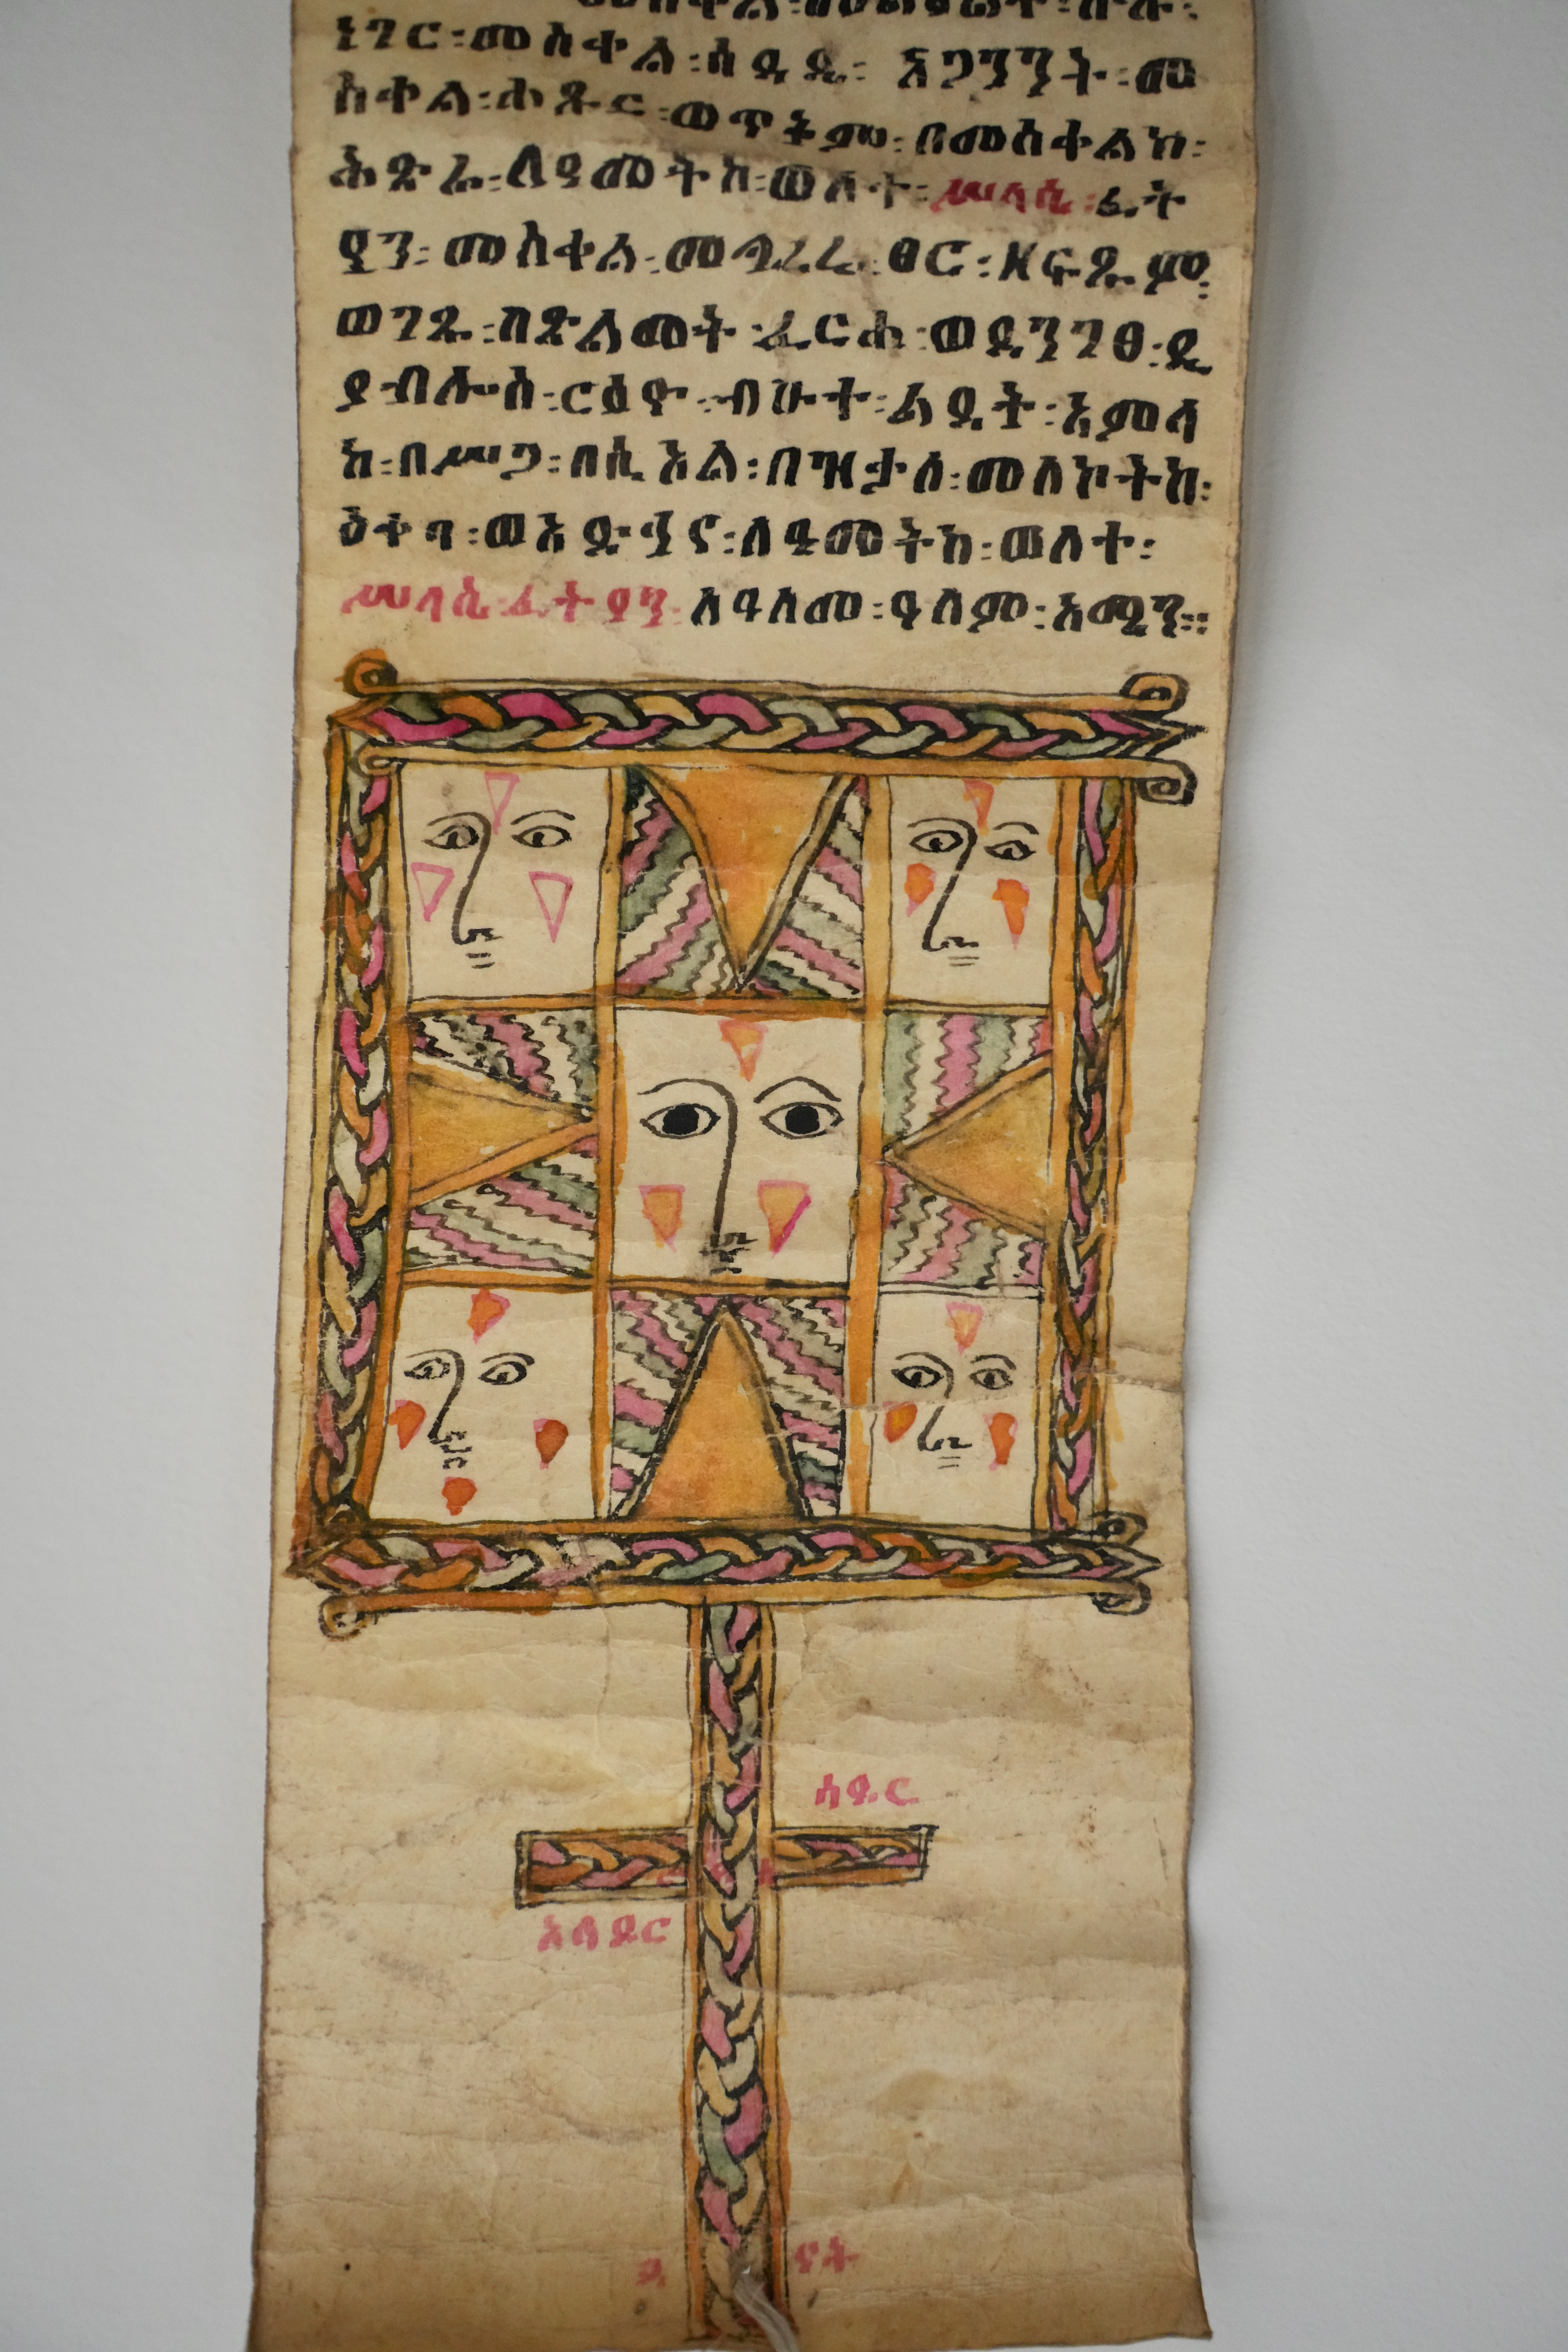 ነገር፡መስቀል፡ሰዳዴ፡ አጋንንት፡መ
ስቀል፡ሐጹር፡ወጥቅም፡በመስቀልከ፡
ሕጽራ፡ለዓመትከ፡ወለተ፡ሥላሴ፡ፊት
ዖን፡ መስቀል፡ ፀር፡
ወገጹ፡በጽልመት፡ፈርሐ፡ወደንገፀ፡ዲ
ያብሎስ፡ርእዮ፡ብሁተ፡ልደት፡አምላ
ክ፡በሥጋ፡በሲኦል፡በዝታለ፡መለኮትከ፡
ዕቀባ፡ወአድኅና፡ለዓመትከ፡ወለተ፡
ሥላሴ፡ፊትዖን፡ለዓለመ፡ዓለም፡አሜን፡፡
ሰዶር
አላዶር
ናት